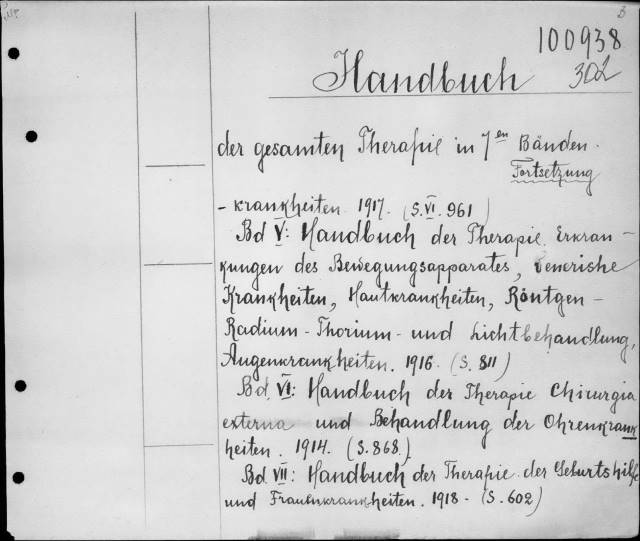 100938
302
Handbuch
der gesamten Therapie in 7en Bänden.
Fortsetzung
- krankheiten 1917. (S. VI. 961)
Bd V: Handbuch der Therapie. Erkran-
kungen des Bewegungsapparates, venerishe
Krankheiten, Hautkrankheiten, Röntgen-
Radium-Thorium- und Lichtbehandlung,
Augenkrankheiten. 1916. (S. 811)
Bd. VI: Handbuch der Therapie Chirurgia
externa und Behandlung der Ohrenkrank
heiten. 1914. (S. 868.)
Bd VII: Handbuch der Therapie der Geburtshilfe
und Frauenkrankheiten. 1918 - (S. 602)